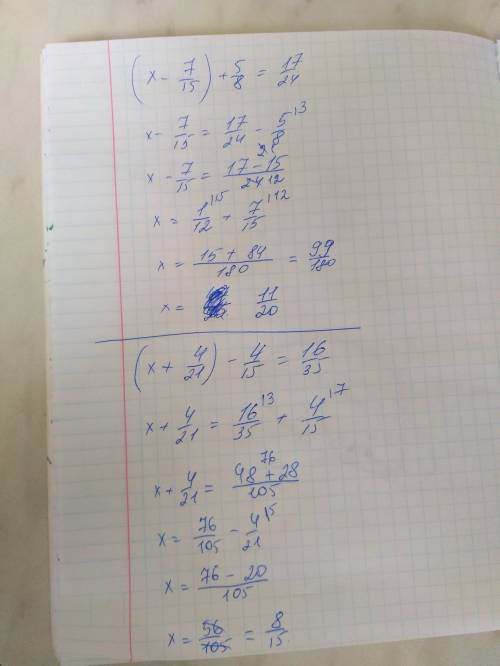 (x - 7/15) + 5/8 = 17/24
x - 7/15 = 17/24 - 5/8 |3
x - 7/15 = 17-15/24 2 12
x = 1/12 |15 + 7/15 |12
x = 15 + 84/180 = 99/180
x = 11/20
(x + 4/21) - 4/15 = 16/35
x + 4/21 = 16/35 |3 + 4/15 |7
x + 4/21 = 48 + 28/105 76
x = 76/105 - 4/21 |5
x = 76 - 20/105
x = 56/105 = 8/15